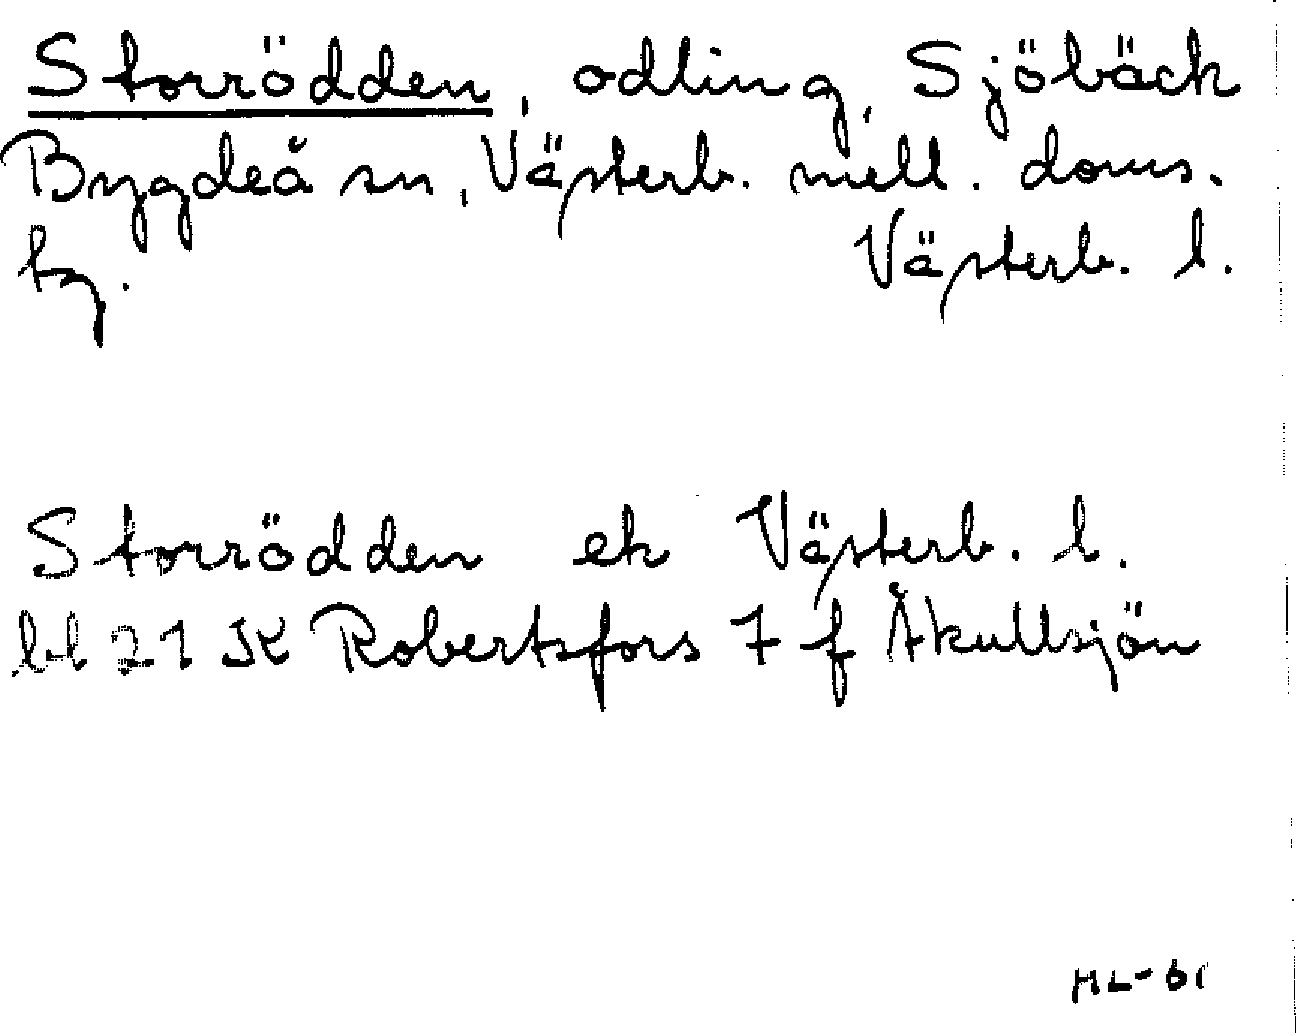 Storrödden, odling, Sjöbäck
Bygdeå sn, Västerb. mell. doms.
tg. Västerb. l.
Storrödden ek Västerb. l.
bl 21 K Robertsfors 7 f Åkullsjön
HL-61